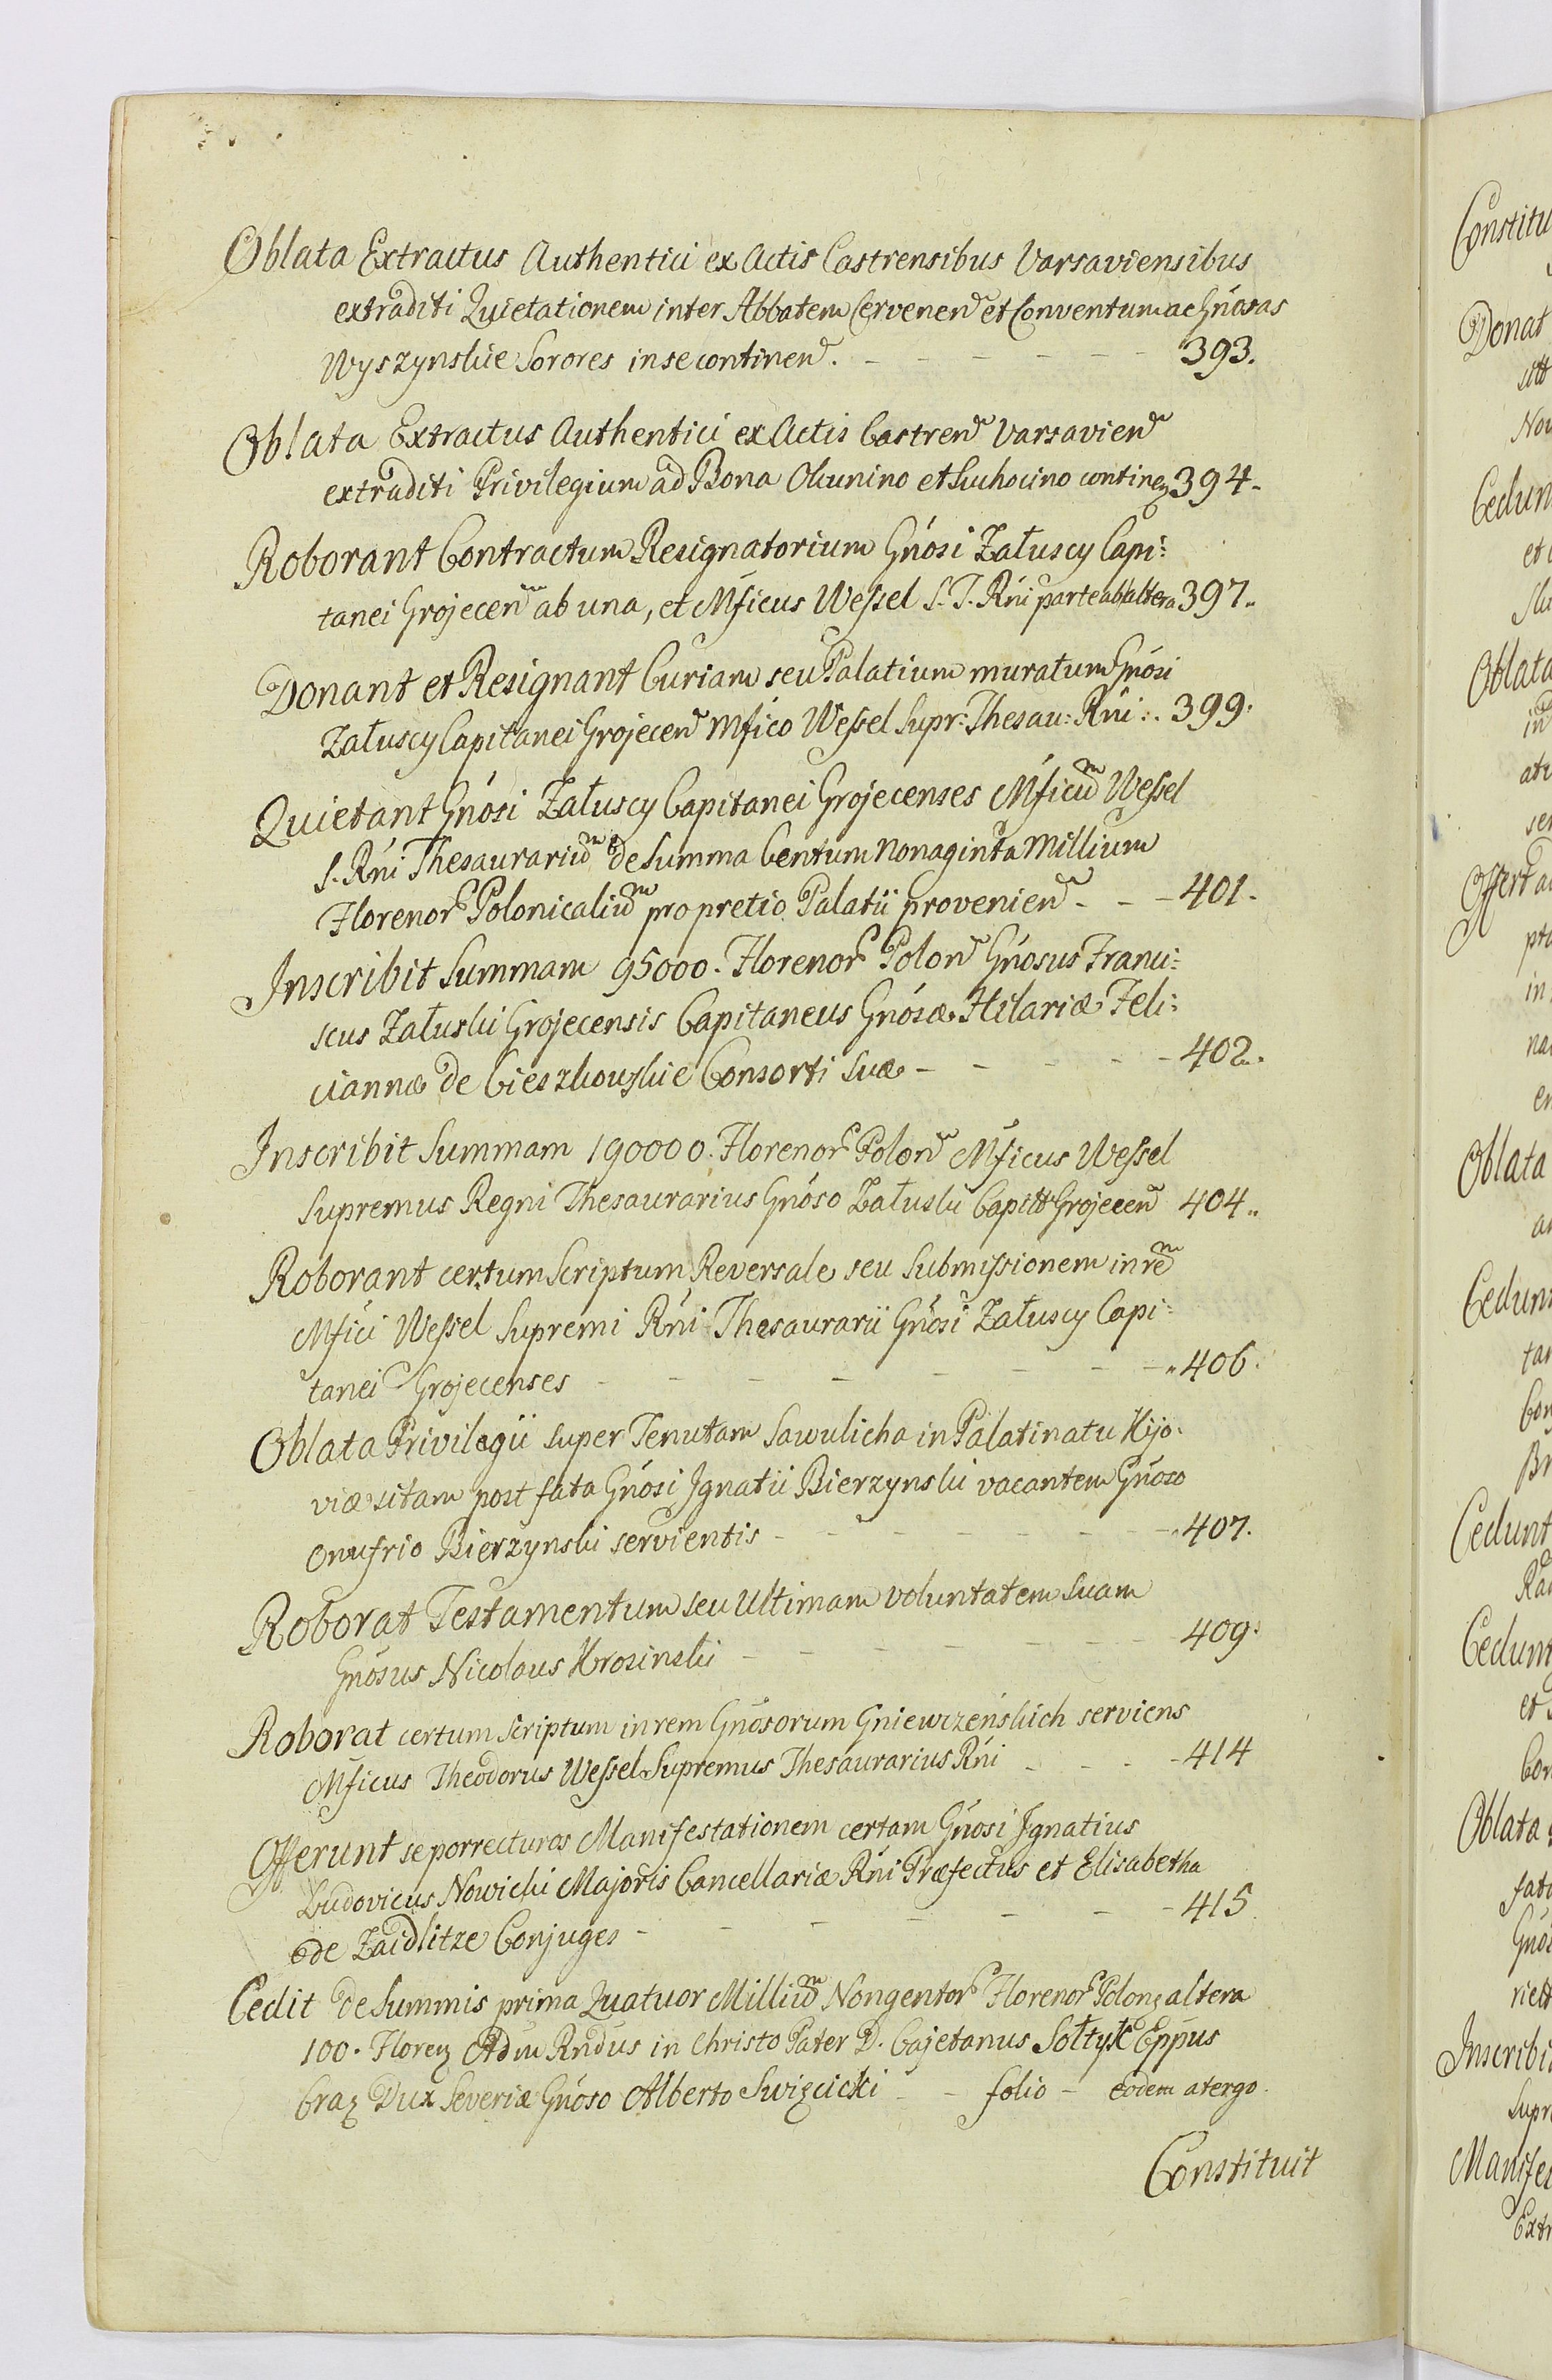 Oblata Extractus Authentici ex Actis Castrensibus Varsaviensibus
extraditi Quietationem inter Abbatem Cervenen et Conventum ac Gnosas
Wyszynskie Sorores in se continen. - - - - - 393.
Oblata Extractus Authentici ex Actis Castren Varsavien
extraditi Privilegium ad Bona Okunino et Suchocino continen 394.
Roborant Contractum Resignatorium Gnósi Załuscy Capi:
tanei Grojecen ab una, et Mficus Wessel S. T. Rni parte ab altera 397.
Donant et Resignant Curiam seu Palatium muratum Gnósi
Załuscy Capitanei Grojecen Mfico Wessel Supr: Thesau: Rni: . 399.
Quietant Gnósi Załuscy Capitanei Grojecenses Mficum Wessel
S. Rni Thesaurarium de Summa Centum Nonaginta Millium
Florenor Polonicalium pro pretio Palatii provenien - - - 401.
Inscribit Summam 95000. Florenor Polon Gnósus Franci:
scus Załuski Grojecensis Capitaneus Gnósæ Hilariæ Feli:
ciannæ de Cieszkowskie Consorti Suæ - - - - - 402.
Inscribit Summam 190000. Florenor Polon Mficus Wessel
Supremus Regni Thesaurarius Gnóso Załuski Capitt Grojecen 404.
Roborant certum Scriptum Reversale seu Submissionem in rem
Mfici Wessel Supremi Rni Thesaurarii Gnósi Załuscy Capi:
tanei Grojecenses - - - - - - - - 406.
Oblata Privilegii super Tenutam Sawulicha in Palatinatu Kijo.
viæ sitam post fata Gnósi Ignatii Bierzynski vacantem Gnóso
Onufrio Bierzynski servientis - - - - - - - 407.
Roborat Testamentum seu Ultimam voluntatem suam
Gnósus Nicolaus Krosinski - - - - - - - 409.
Roborat certum scriptum in rem Gnósorum Gniewczeńskich serviens
Mficus Theodorus Wessel Supremus Thesaurarius Rni - - - 414
Offerunt se porrecturos Manifestationem certam Gnósi Ignatius
Ludovicus Nowicki Majoris Cancellariæ Rni Præfectus et Elisabetha
de Zaidlitze Conjuges - - - - - - - 415.
Cedit de Summis prima Quatuor Millium Nongentor Florenor Polon altera
100. Floren Adm Rndus in Christo Pater D. Cajetanus Sołtyk Eppus
Crac Dux Severiæ Gnóso Alberto Swięcicki - - folio - eodem atergo.
Constituit
Constitu
Donat
Nov
Cedun
Oblata
Offert
Oblata
Cedun
Cedunt
Cedunt
et
Oblata
fata
Inscribi
Supr
Manifes
Extr